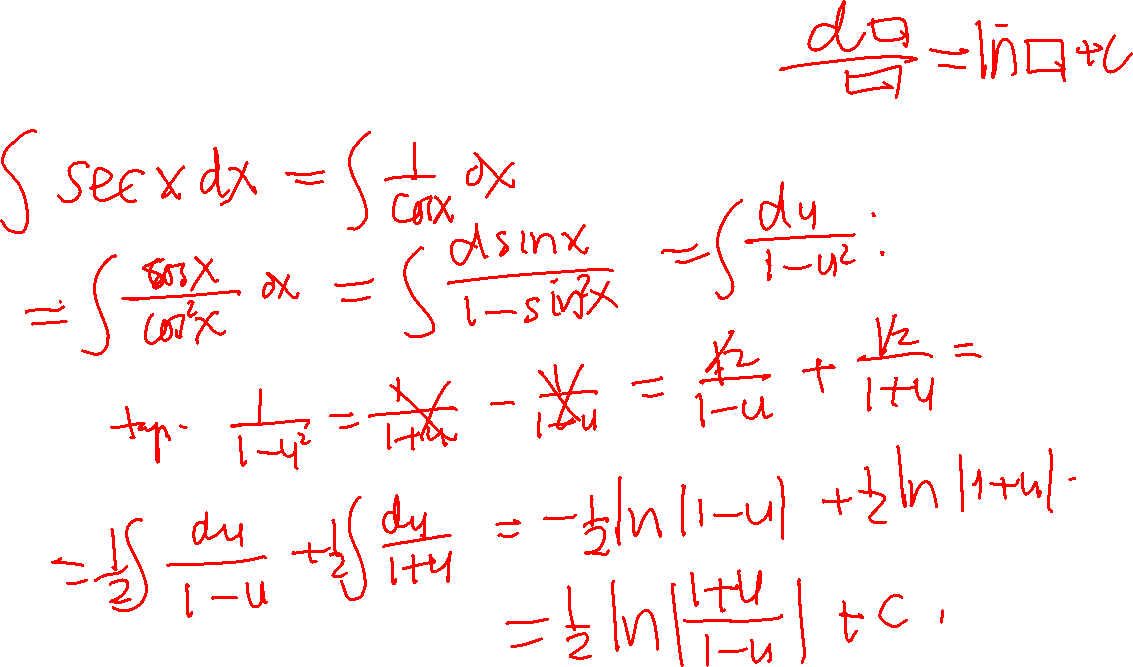 d□/□ = ln □ + C
∫ sec x dx = ∫ 1/cos x dx
= ∫ cos x/cos²x dx = ∫ d sin x/(1 - sin²x) = ∫ du/(1 - u²) .
1/(1 - u²) = 1/(1 + u) - 1/(1 - u) = 1/2/(1 - u) + 1/2/(1 + u) =
= 1/2 ∫ du/(1 - u) + 1/2 ∫ du/(1 + u) = - 1/2 ln |1 - u| + 1/2 ln |1 + u| .
= 1/2 ln |(1 + u)/(1 - u)| + C .